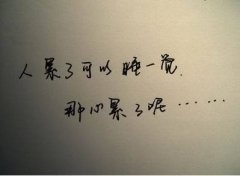 人累了可以睡一觉,
那心累了呢……